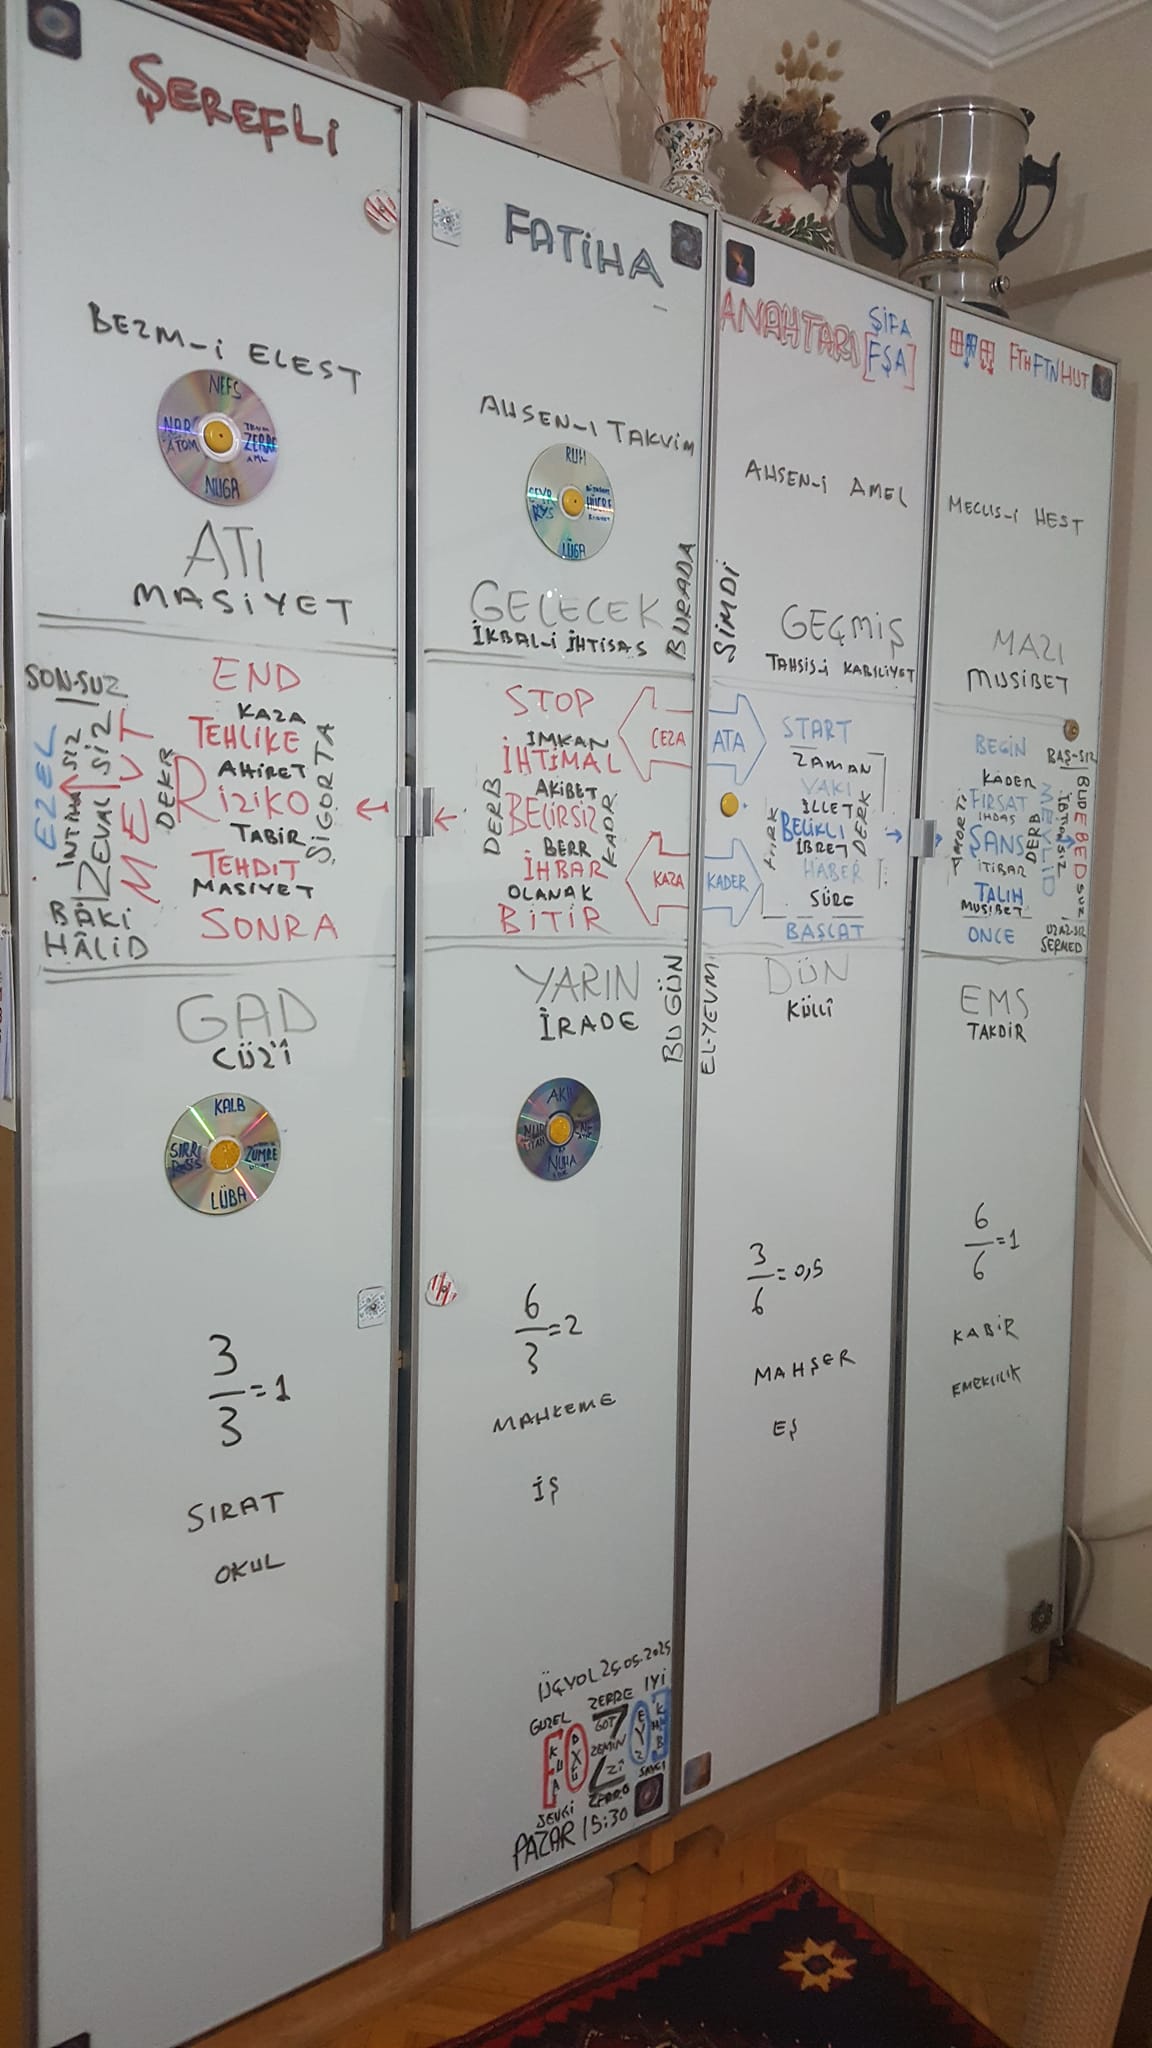 ŞEREFLİ
BEZM-İ ELEST
NEFS
NAR
ATOM
ZERRE
NUGA
ATI
MASİYET
SON-SUZ
EZEL
İNTİHA SIZ
ZEVAL SİZ
MEVT
DERK
BÂKİ
HÂLİD
END
KAZA
TEHLİKE
AHİRET
RİZİKO
TABİR
TEHDİT
MASİYET
SONRA
SİGORTA
GAD
CÜZ'Î
KALB
SIRRI
ZÜMRE
LÜBA
3/3=1
SIRAT
OKUL
FATİHA
AHSEN-I TAKVİM
RUH
HÜCRE
LÜGA
GELECEK
İKBAL-İ İHTİSAS
BURADA
STOP
İMKAN
İHTİMAL
AKİBET
BELİRSİZ
BERR
İHBAR
OLANAK
BİTİR
DERB
KADER
CEZA
KAZA
YARIN
İRADE
BU GÜN
NUR
NUHA
6/3=2
MAHKEME
İŞ
ÜÇYOL 25.05.2025
GÜZEL
ZERRE
İYİ
ZEMİN
SEVGİ
SAYGI
PAZAR 15:30
ANAHTARI
ŞİFA
[FŞA]
AHSEN-İ AMEL
ŞİMDİ
GEÇMİŞ
TAHSİS-İ KABİLİYET
ATA
KADER
START
ZAMAN
VAKİ
İLLET
BELİKLİ
İBRET
HABER
SÜRE
BAŞLAT
FIRK
DERK
EL-YEVM
DÜN
KÜLLÎ
3/6=0,5
MAHŞER
EŞ
FTHFTNHUT
MECLİS-İ HEST
MAZI
MUSİBET
BEGİN
KADER
FIRSAT
İHDAS
ŞANS
İTİBAR
TALİH
MUSİBET
ONCE
AMORTİ
DERB
MEVLİD
BAŞ-SIZ
SERMED
EMS
TAKDIR
6/6=1
KABİR
EMEKLİLİK